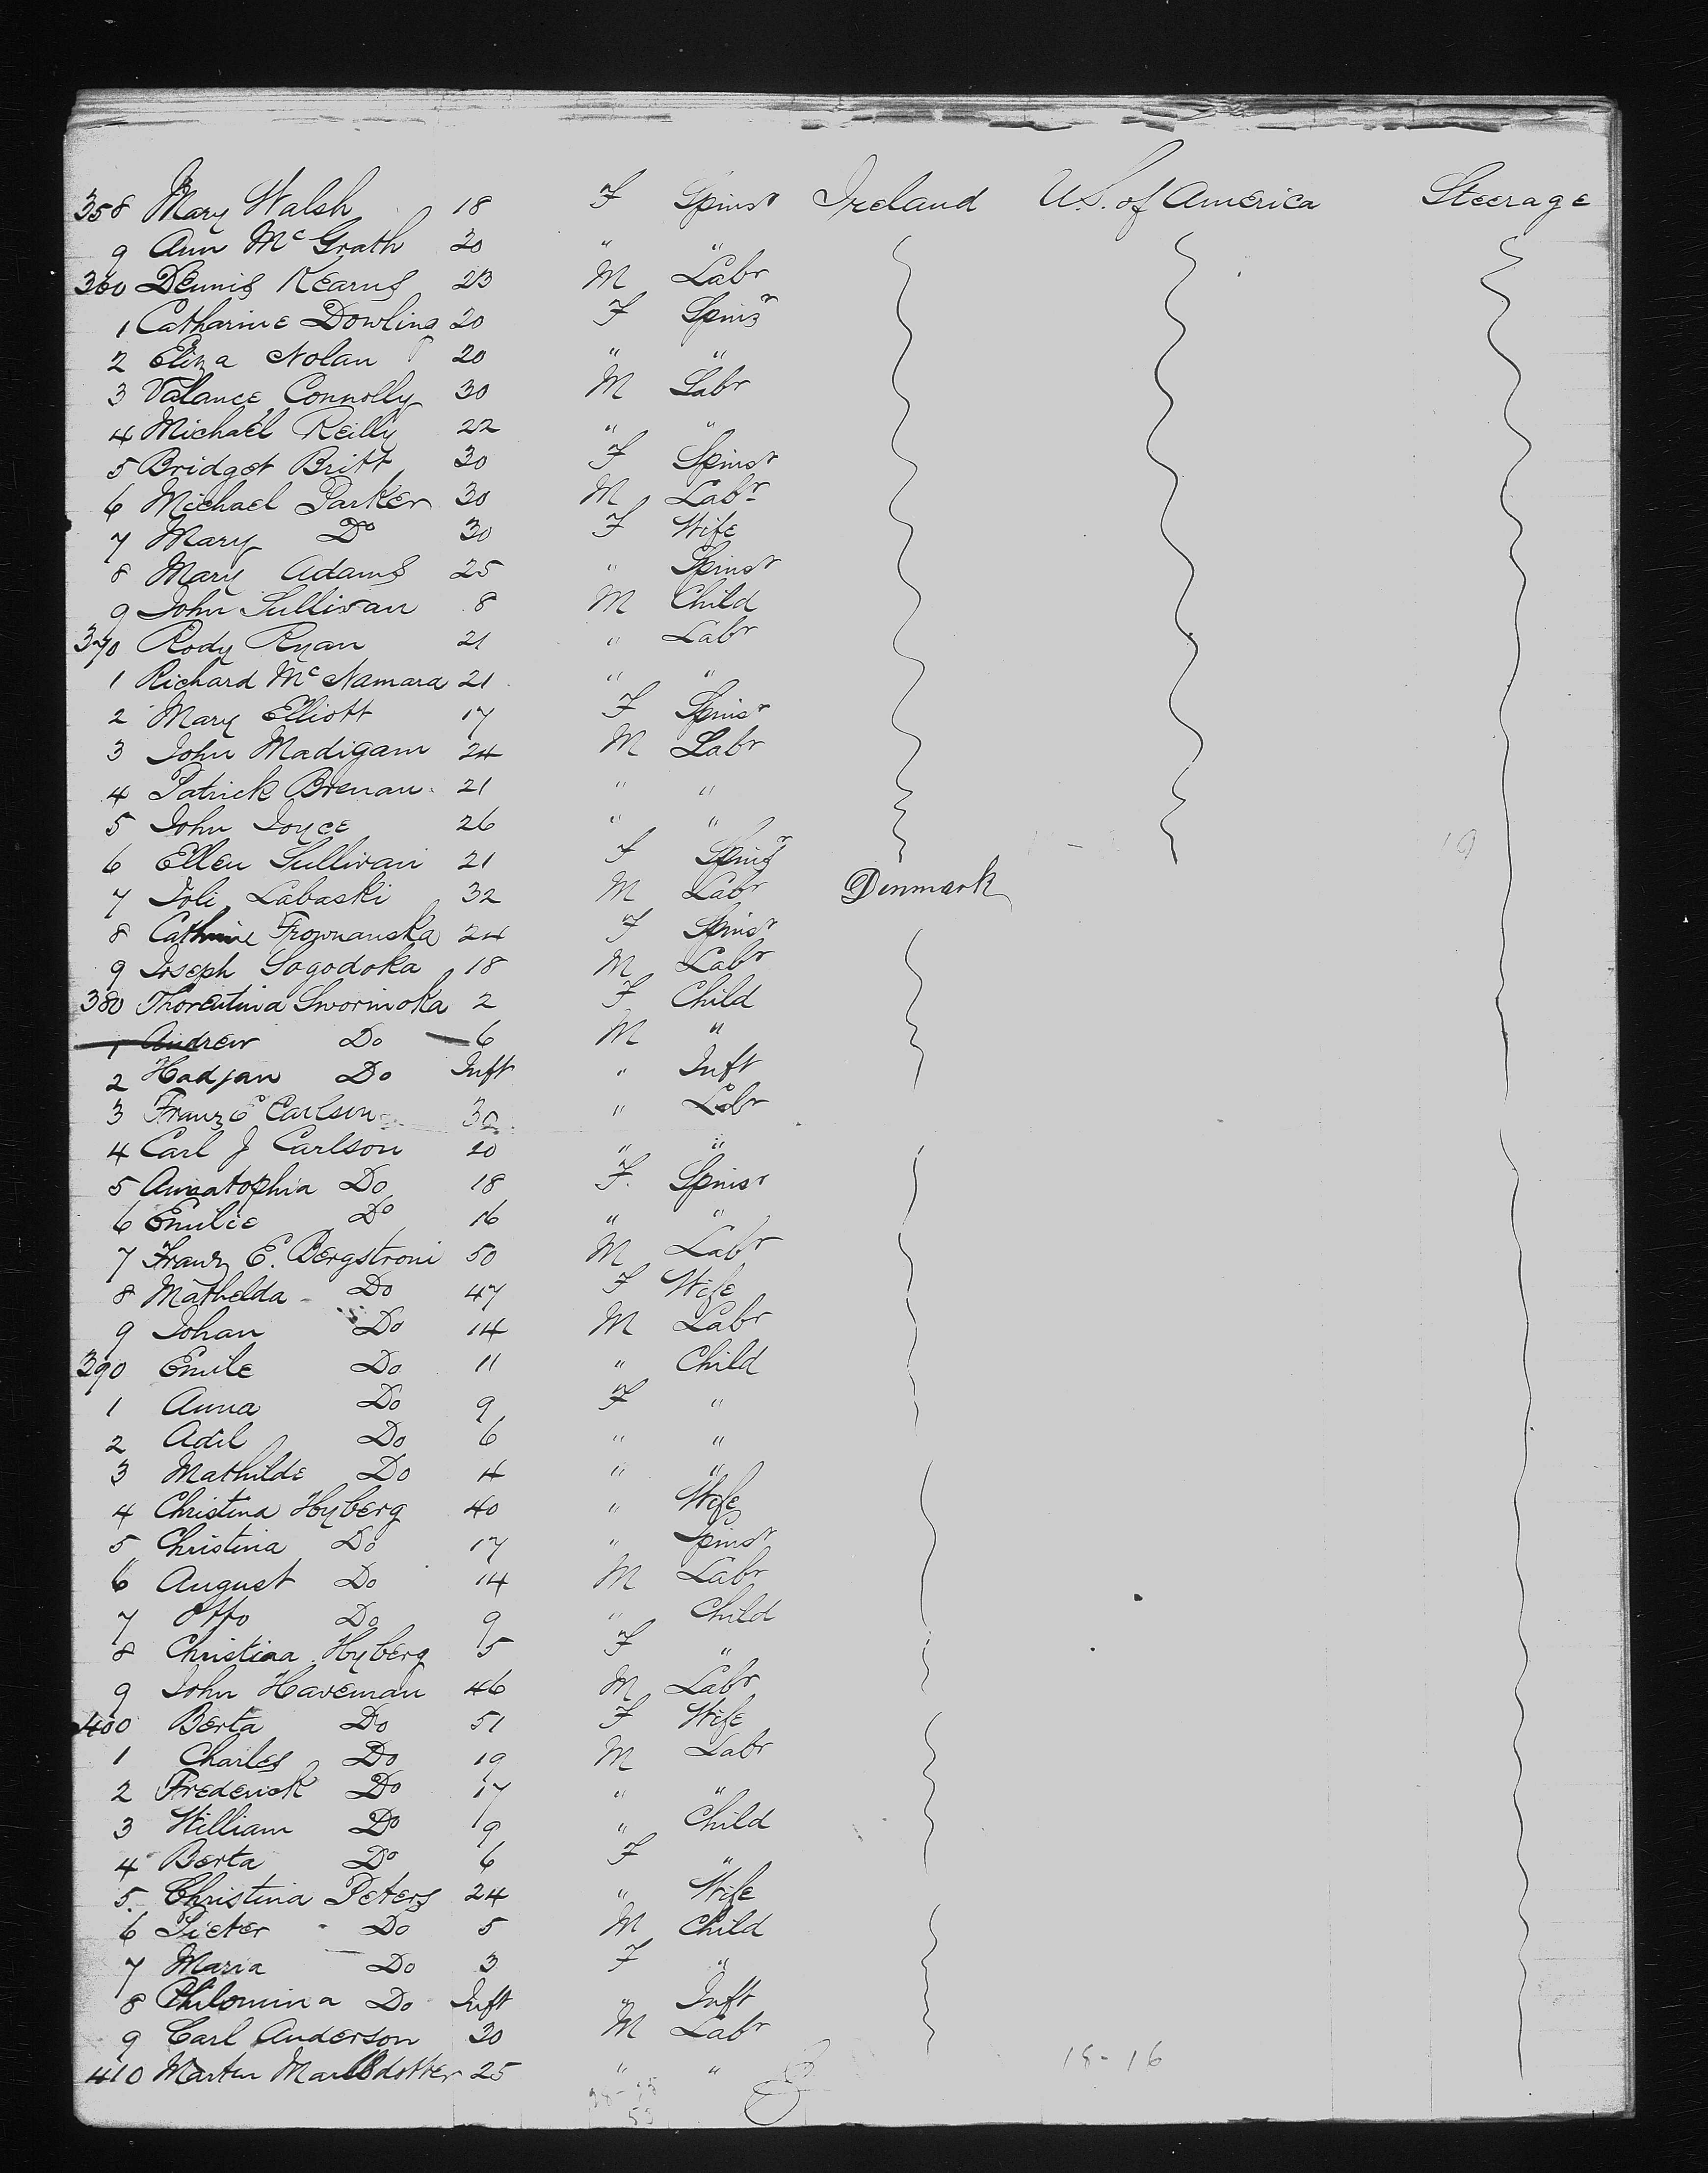 358 Mary Walsh 18 F Spinsr Ireland U.S. of America Steerage
9 Ann McGrath 20 " "
360 Dennis Kearns 23 M Labr
1 Catharine Dowling 20 F Spinsr
2 Eliza Nolan 20 " "
3 Valance Connolly 30 M Labr
4 Michael Reilly 22 " "
5 Bridget Britt 30 F Spinsr
6 Michael Parker 30 M Labr
7 Mary Do 30 F Wife
8 Mary Adams 25 " Spinsr
9 John Sullivan 8 M Child
370 Rody Ryan 21 " Labr
1 Richard McNamara 21 " "
2 Mary Elliott 17 F Spinsr
3 John Madigam 24 M Labr
4 Patrick Brenan 21 " "
5 John Joyce 26 " "
6 Ellen Sullivan 21 F Spinsr 19
7 Labaski 32 M Labr Denmark
8 Cathrine Frownanska 24 F Spinsr
9 Joseph Sogodoka 18 M Labr
380 Thorentina Sworinoka 2 F Child
1 Andrew Do 6 M "
2 Hadjan Do Inft " Inft
3 Franz E Carlson " Labr
4 Carl J Carlson 20 " "
5 Do 18 F. Spinsr
6 Emilie Do 16 " "
7 Franz E. Bergstroni 50 M Labr
8 Mathelda Do 47 F Wife
9 Johan Do 14 M Labr
390 Emile Do 11 " Child
1 Anna Do 9 F "
2 Adil Do 6 " "
3 Mathilde Do 4 " "
4 Christina Hyberg 40 " Wife
5 Christina Do 17 " Spinsr
6 August Do 14 M Labr
7 Otto Do 9 " Child
8 Christina Hyberg 5 F "
9 John Haveman 46 M Labr
400 Berta Do 51 F Wife
1 Charles Do 19 M Labr
2 Frederick Do 17 " "
3 William Do 9 " Child
4 Berta Do 6 F "
5 Christina Peters 24 " Wife
6 Pieter Do 5 M Child
7 Maria Do 3 F "
8 Philomina Do Inft " Inft
9 Carl Anderson 30 M Labr
410 Marten 25 " " 18-16